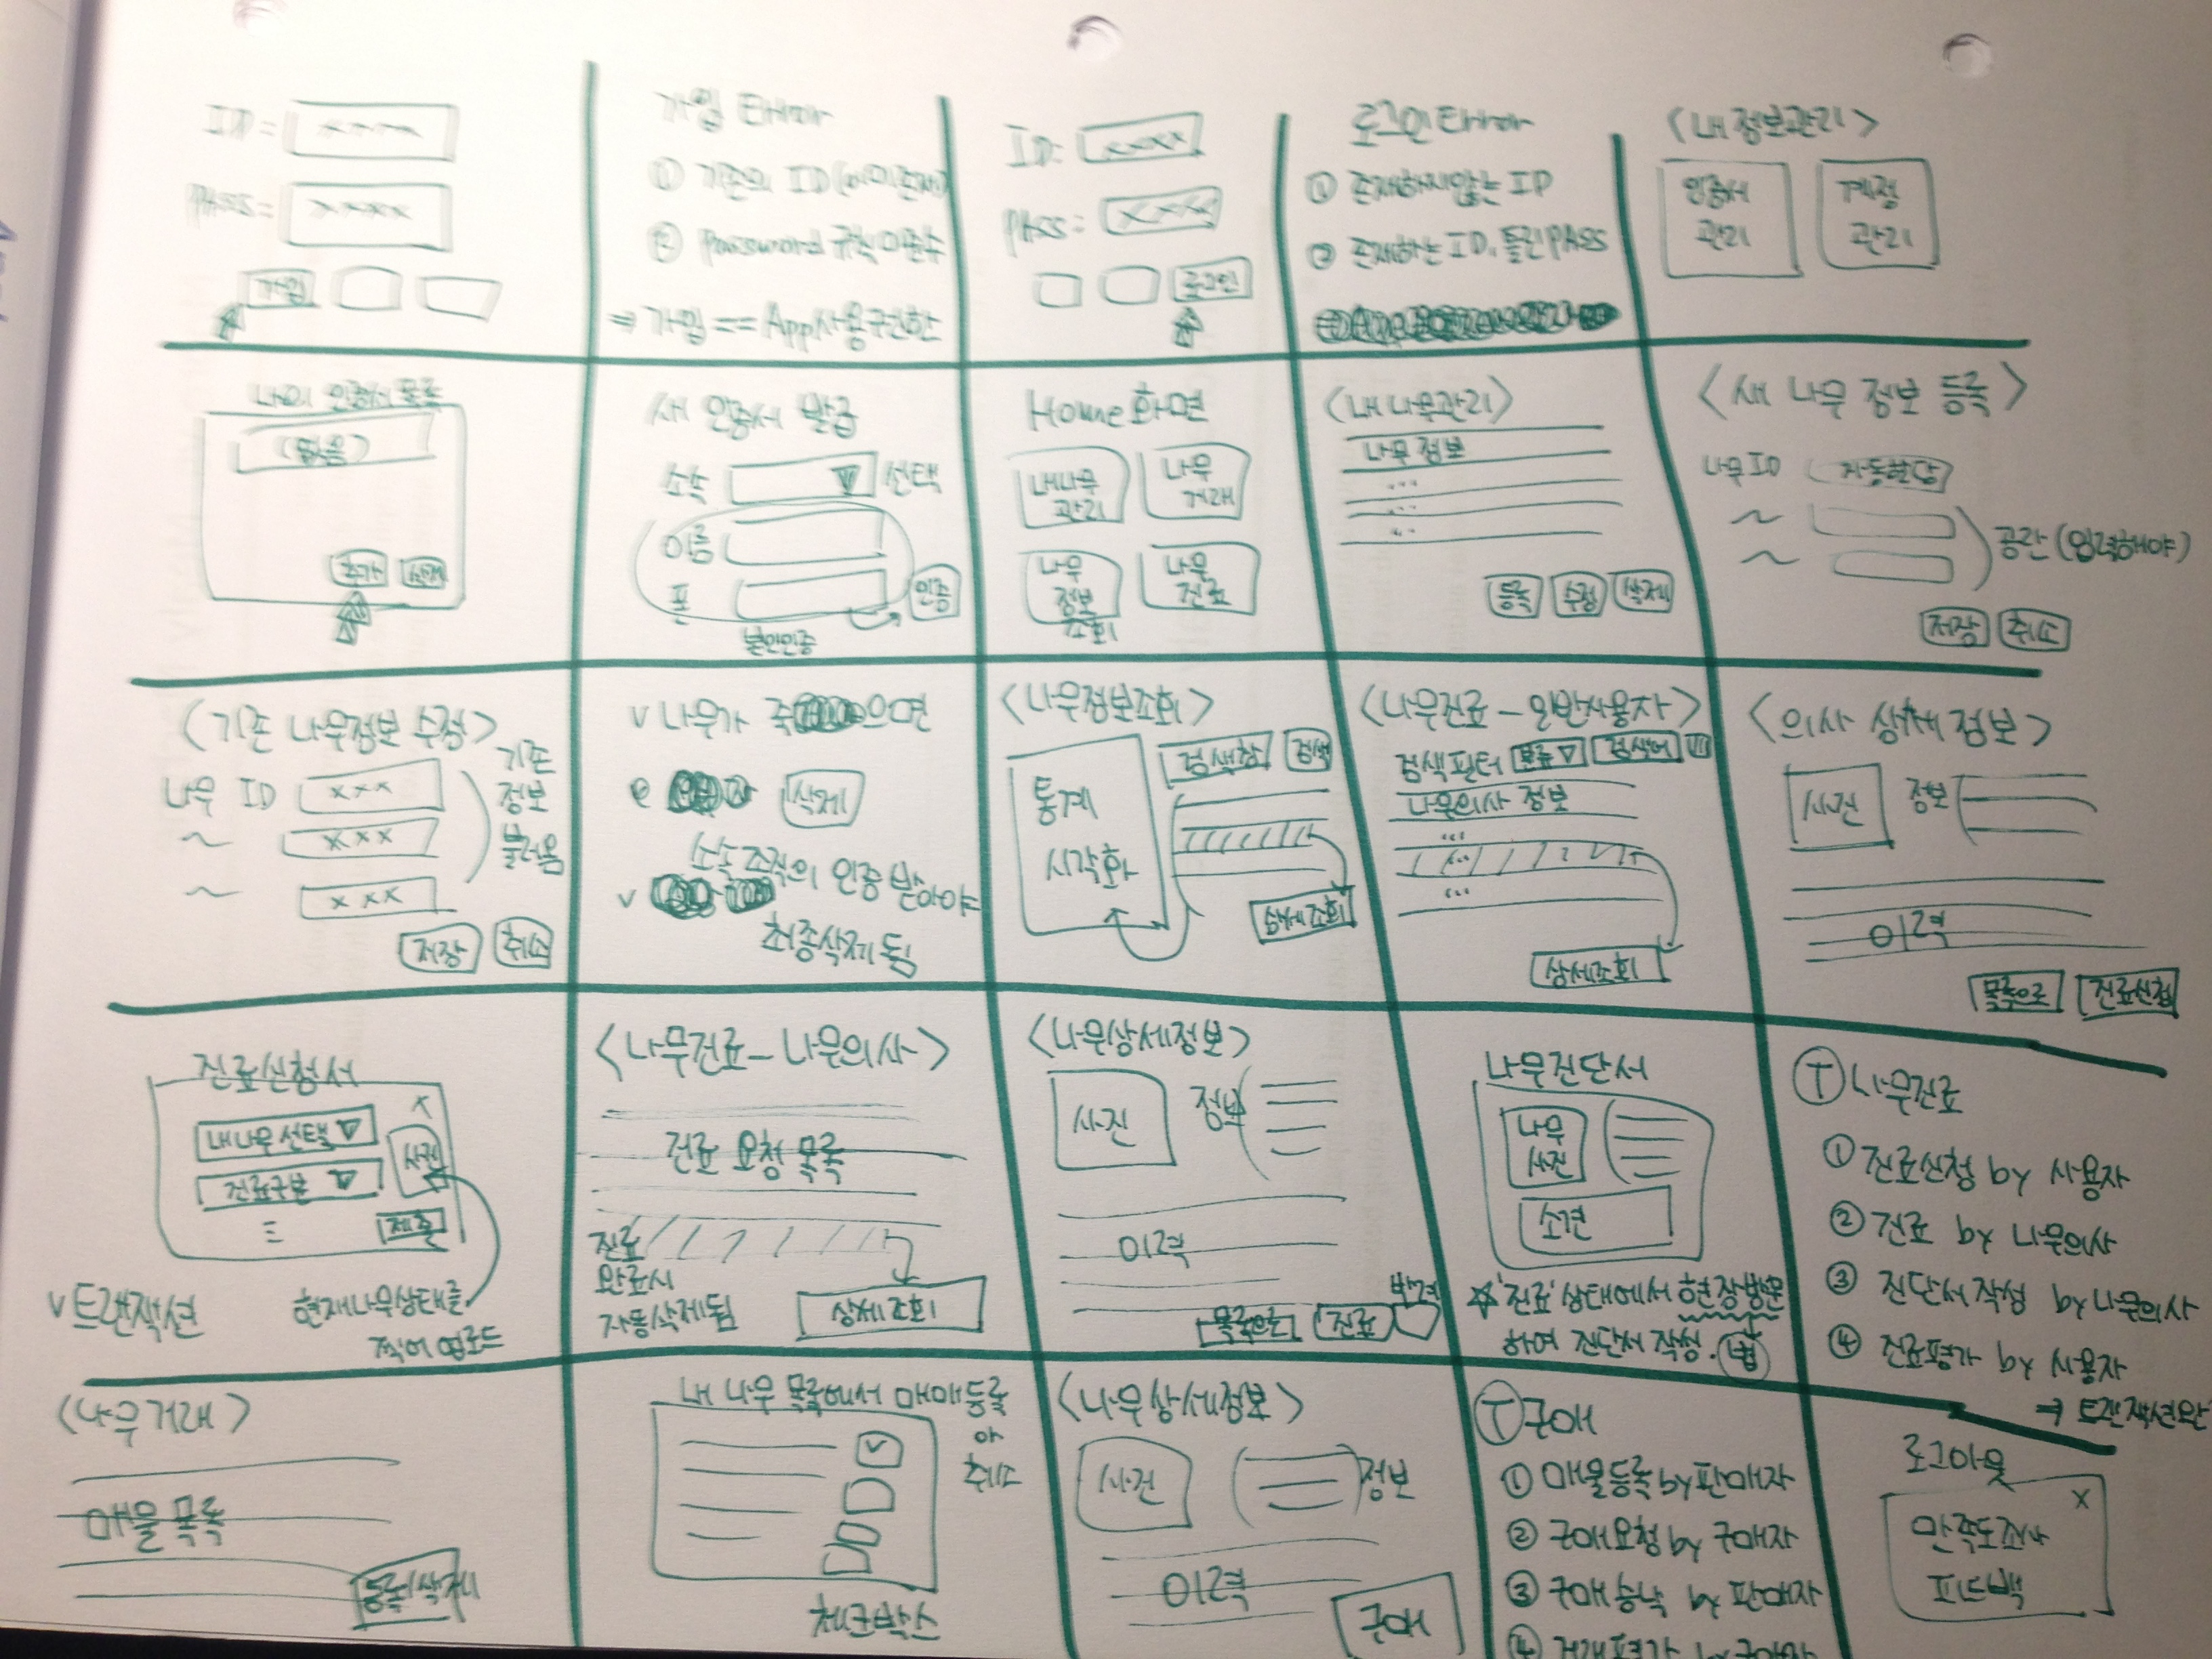 ID= xxxx
PASS= xxxx
가입
가입 Error
① 기존의 ID (이미존재)
② Password 규칙 미준수
⇒ 가입 == App사용권한
ID: xxxx
PASS: xxxx
로그인
로그인 Error
① 존재하지않는 ID
② 존재하는 ID, 틀린 PASS
<내 정보관리>
인증서
관리
계정
관리
나의 인증서 목록
(없음)
추가 삭제
새 인증서 발급
소속 ▽ 선택
이름
폰
인증
본인인증
Home화면
내나무
관리
나무
거래
나무
정보
조회
나무
진료
<내 나무관리>
나무 정보
...
...
등록 수정 삭제
<새 나무 정보 등록>
나무 ID 자동할당
~
~
공란 (입력해야)
저장 취소
<기존 나무정보 수정>
나무 ID xxx
~ xxx
~ xxx
기존
정보
불러옴
저장 취소
v 나무가 죽 으면
삭제
소속 조직의 인증 받아야
v
최종삭제 됨
<나무정보조회>
통계
시각화
검색창 검색
상세조회
<나무진료 - 일반사용자>
검색필터 분류 ▽ 검색어
나무의사 정보
...
...
...
상세조회
<의사 상세 정보>
사진 정보
이력
목록으로 진료신청
진료신청서
X
내나무선택 ▽
진료구분 ▽
사진
제출
v 트랜잭션
현재나무상태를
찍어 업로드
<나무진료 - 나무의사>
진료 요청 목록
진료
완료시
자동삭제됨
상세조회
<나무상세정보>
사진 정보
이력
목록으로 진료 반려
나무진단서
나무
사진
소견
☆'진료'상태에서 현장방문
하여 진단서 작성. 법
Ⓣ 나무진료
① 진료신청 by 사용자
② 진료 by 나무의사
③ 진단서 작성 by 나무의사
④ 진료평가 by 사용자
⇒ 트랜잭션완
<나무거래>
매물 목록
등록/삭제
내 나무 목록에서 매매등록
or
취소
v
체크박스
<나무상세정보>
사진 정보
이력
구매
Ⓣ 구매
① 매물등록 by 판매자
② 구매요청 by 구매자
③ 구매승낙 by 판매자
④ 거래평가 by 구매자
로그아웃
X
만족도조사
피드백